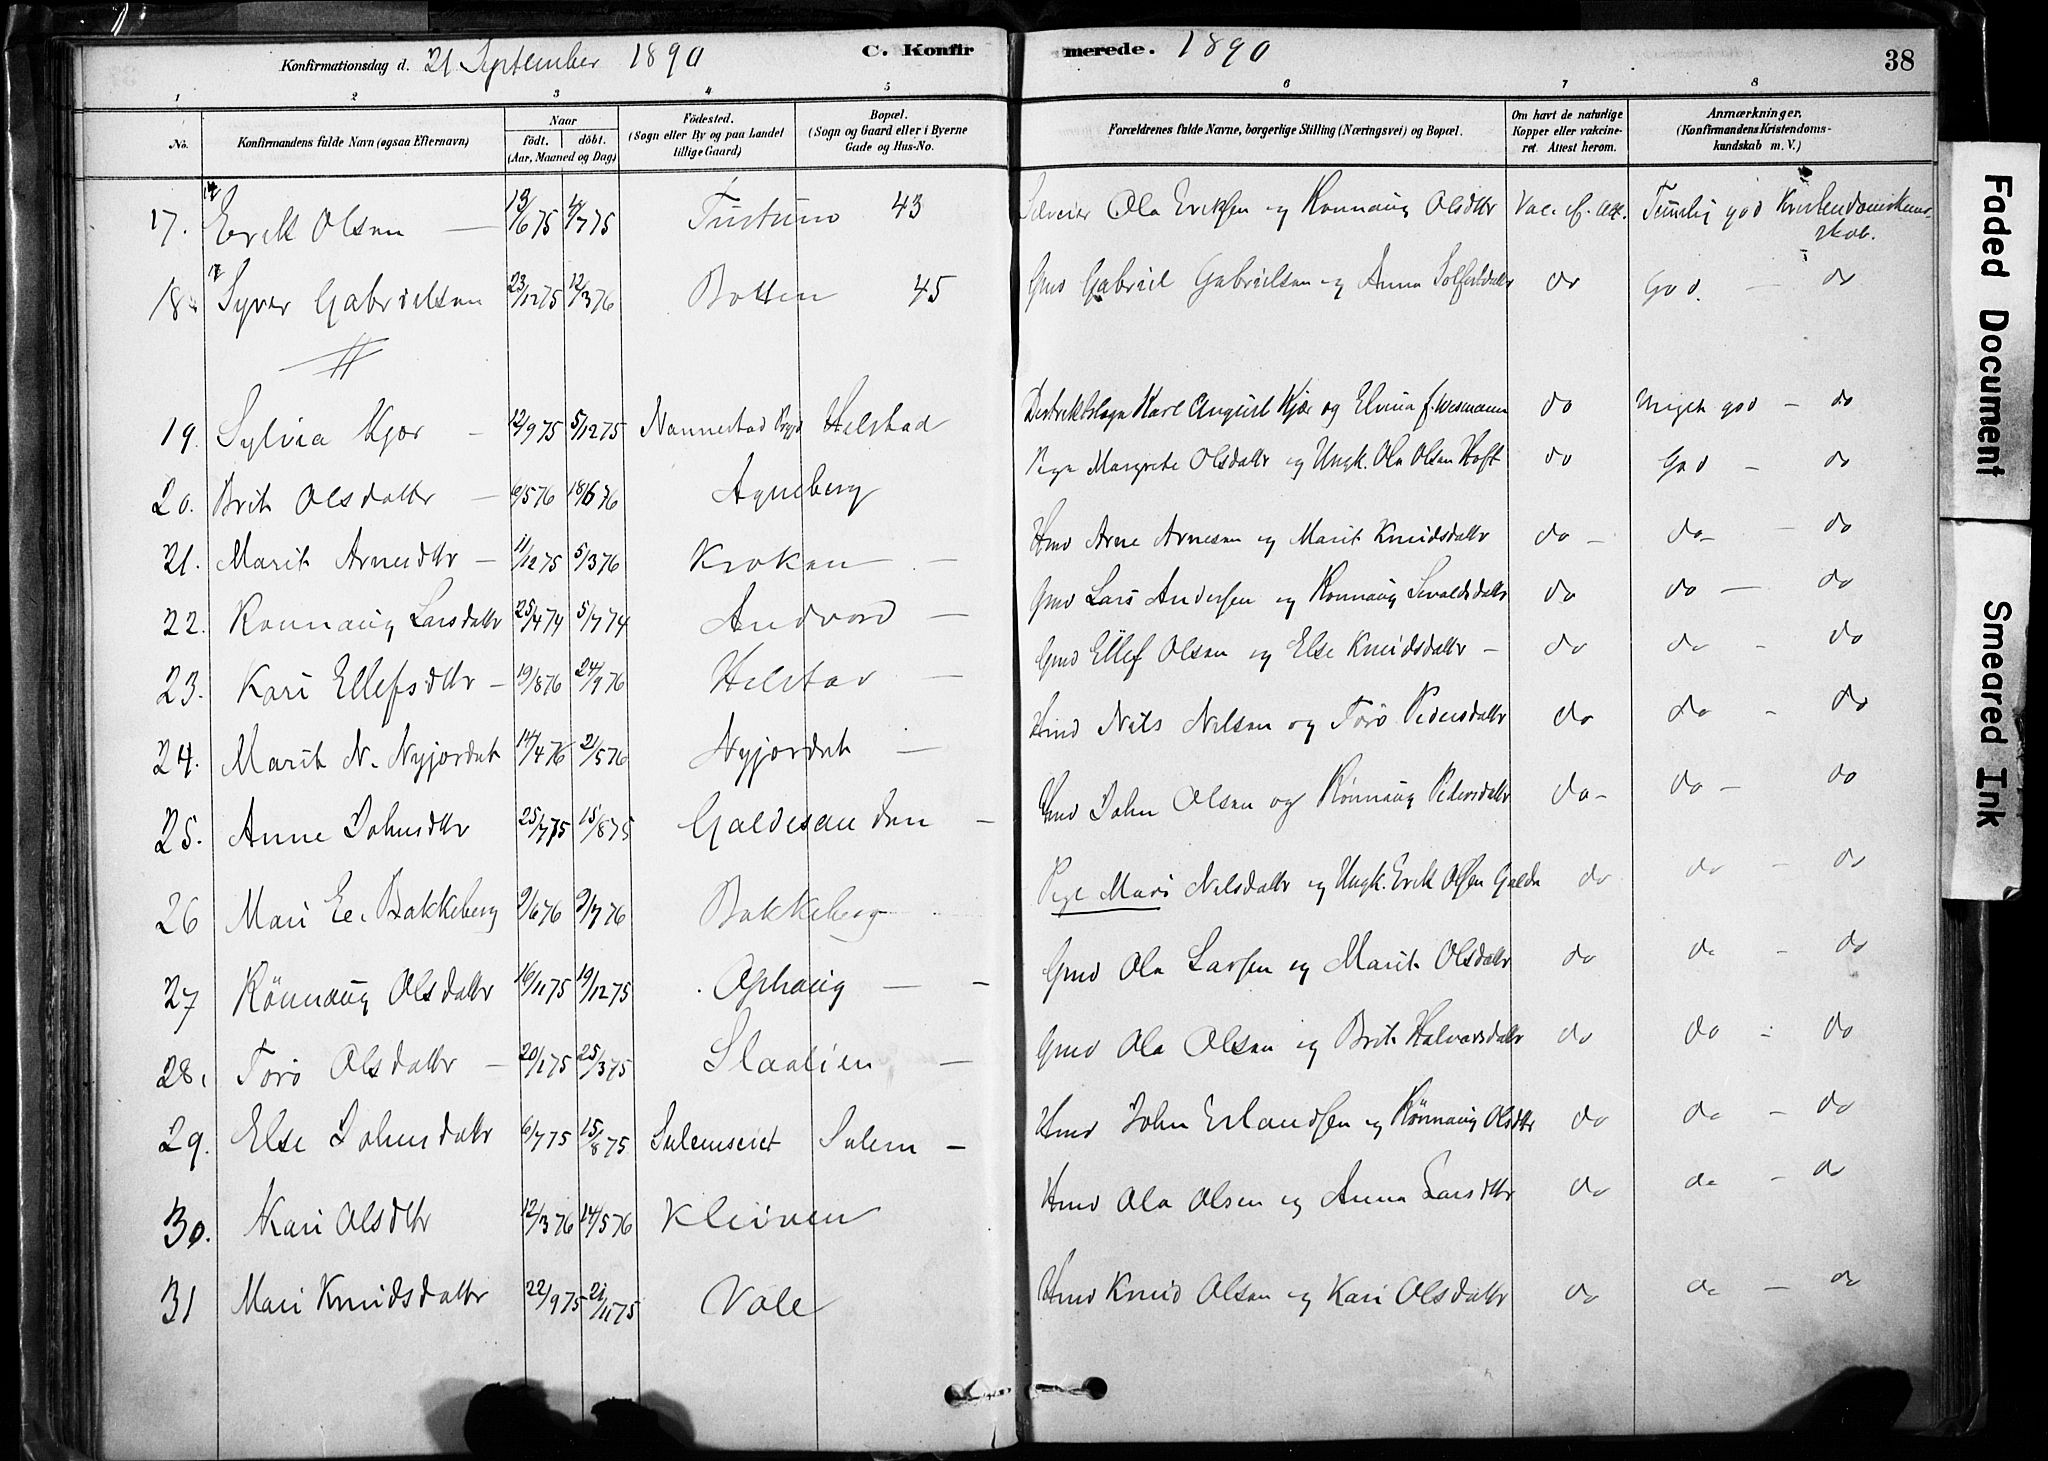 Konfirmationsdag d. 21 September 1890 C. Konfirmerede. 1890 38
1 2 3 4 5 6 7 8
No. Konfirmandens fulde Navn (ogsaa Efternavn) Naar födt. döbt. (Aar, Maaned og Dag) Födested. (Sogn eller By og paa Landet tillige Gaard) Bopæl. (Sogn og Gaard eller i Byerne Gade og Hus-No. Forældrenes fulde Navne, borgerlige Stilling (Næringsvei) og Bopæl. Om havt de naturlige Kopper eller vakcineret. Attest herom. Anmærkninger. (Konfirmandens Kristendomskundskab m. V.)
17. Erik Olsen — 13/6 75 4/7 75 43 Ola Eriksen og Ronnaug Olsdtr Vac. Temlig god Kristendomskundskab.
18. Syver Gabrielsen 23/12 75 12/3 76 Botten 45 Gmd Gabriel Gabrielsen og Anna do God. — do
19. Sylvia Kjær — 12/9 75 5/12 75 Nannestad Helstad Karl August Kjær og Elvina f. Wesmann do Meget god — do
20. Brit Olsdattr — 6/5 76 18/6 76 Ayneberg Pige Margrete Olsdattr og Ungk. Ola Olsen Hoft do God — do
21. Marit Arnesdtr — 11/12 75 5/3 76 Kroken — Hmd Arne Arnesen og Marit Knudsdattr do — do — do
22. Ronnaug Larsdattr 25/4 74 5/7 74 Andvord — Gmd Lars Andersen og Ronnaug Sevaldsdattr do do — do
23. Kari Ellefsdtr — 19/8 76 24/9 76 Helstad — Gmd Ellef Olsen og Else Knudsdattr — do do - do
24. Marit N. Nyjordet 14/4 76 2/5 76 Nyjordet — Hmd Nils Nilsen og Torö Pedersdattr do do - do
25. Anne Johnsdtr 25/7 75 15/8 75 Galdesanden — Hmd John Olsen og Rönnaug Pedersdattr do- do — do
26 Mari E. Bakkeberg 2/6 76 9/7 76 Bakkeberg Pige Mari Nilsdattr og Ungk. Erik Olsen Galde do do - do
27 Rönnaug Olsdattr 16/11 75 19/12 75 Ophaug — — Gmd Ola Larsen og Marit Olsdattr do do - do
28. Torö Olsdattr — 20/1 75 25/3 75 Slaalien — Gmd Ola Olsen og Brit Halvorsdattr do do - do
29. Else Johnsdattr 6/7 75 15/8 75 Sulemseiet Sulem — Hmd John Erlandsen og Rönnaug Olsdtr do do - do
30. Kari Olsdtr 12/3 76 14/5 76 Kleiven Hmd Ola Olsen og Anna Larsdtr do do - do
31 Mari Knudsdattr 22/9 75 21/11 75 Vole Hmd Knud Olsen og Kari Olsdattr do do — do
Faded Document
Smeared Ink